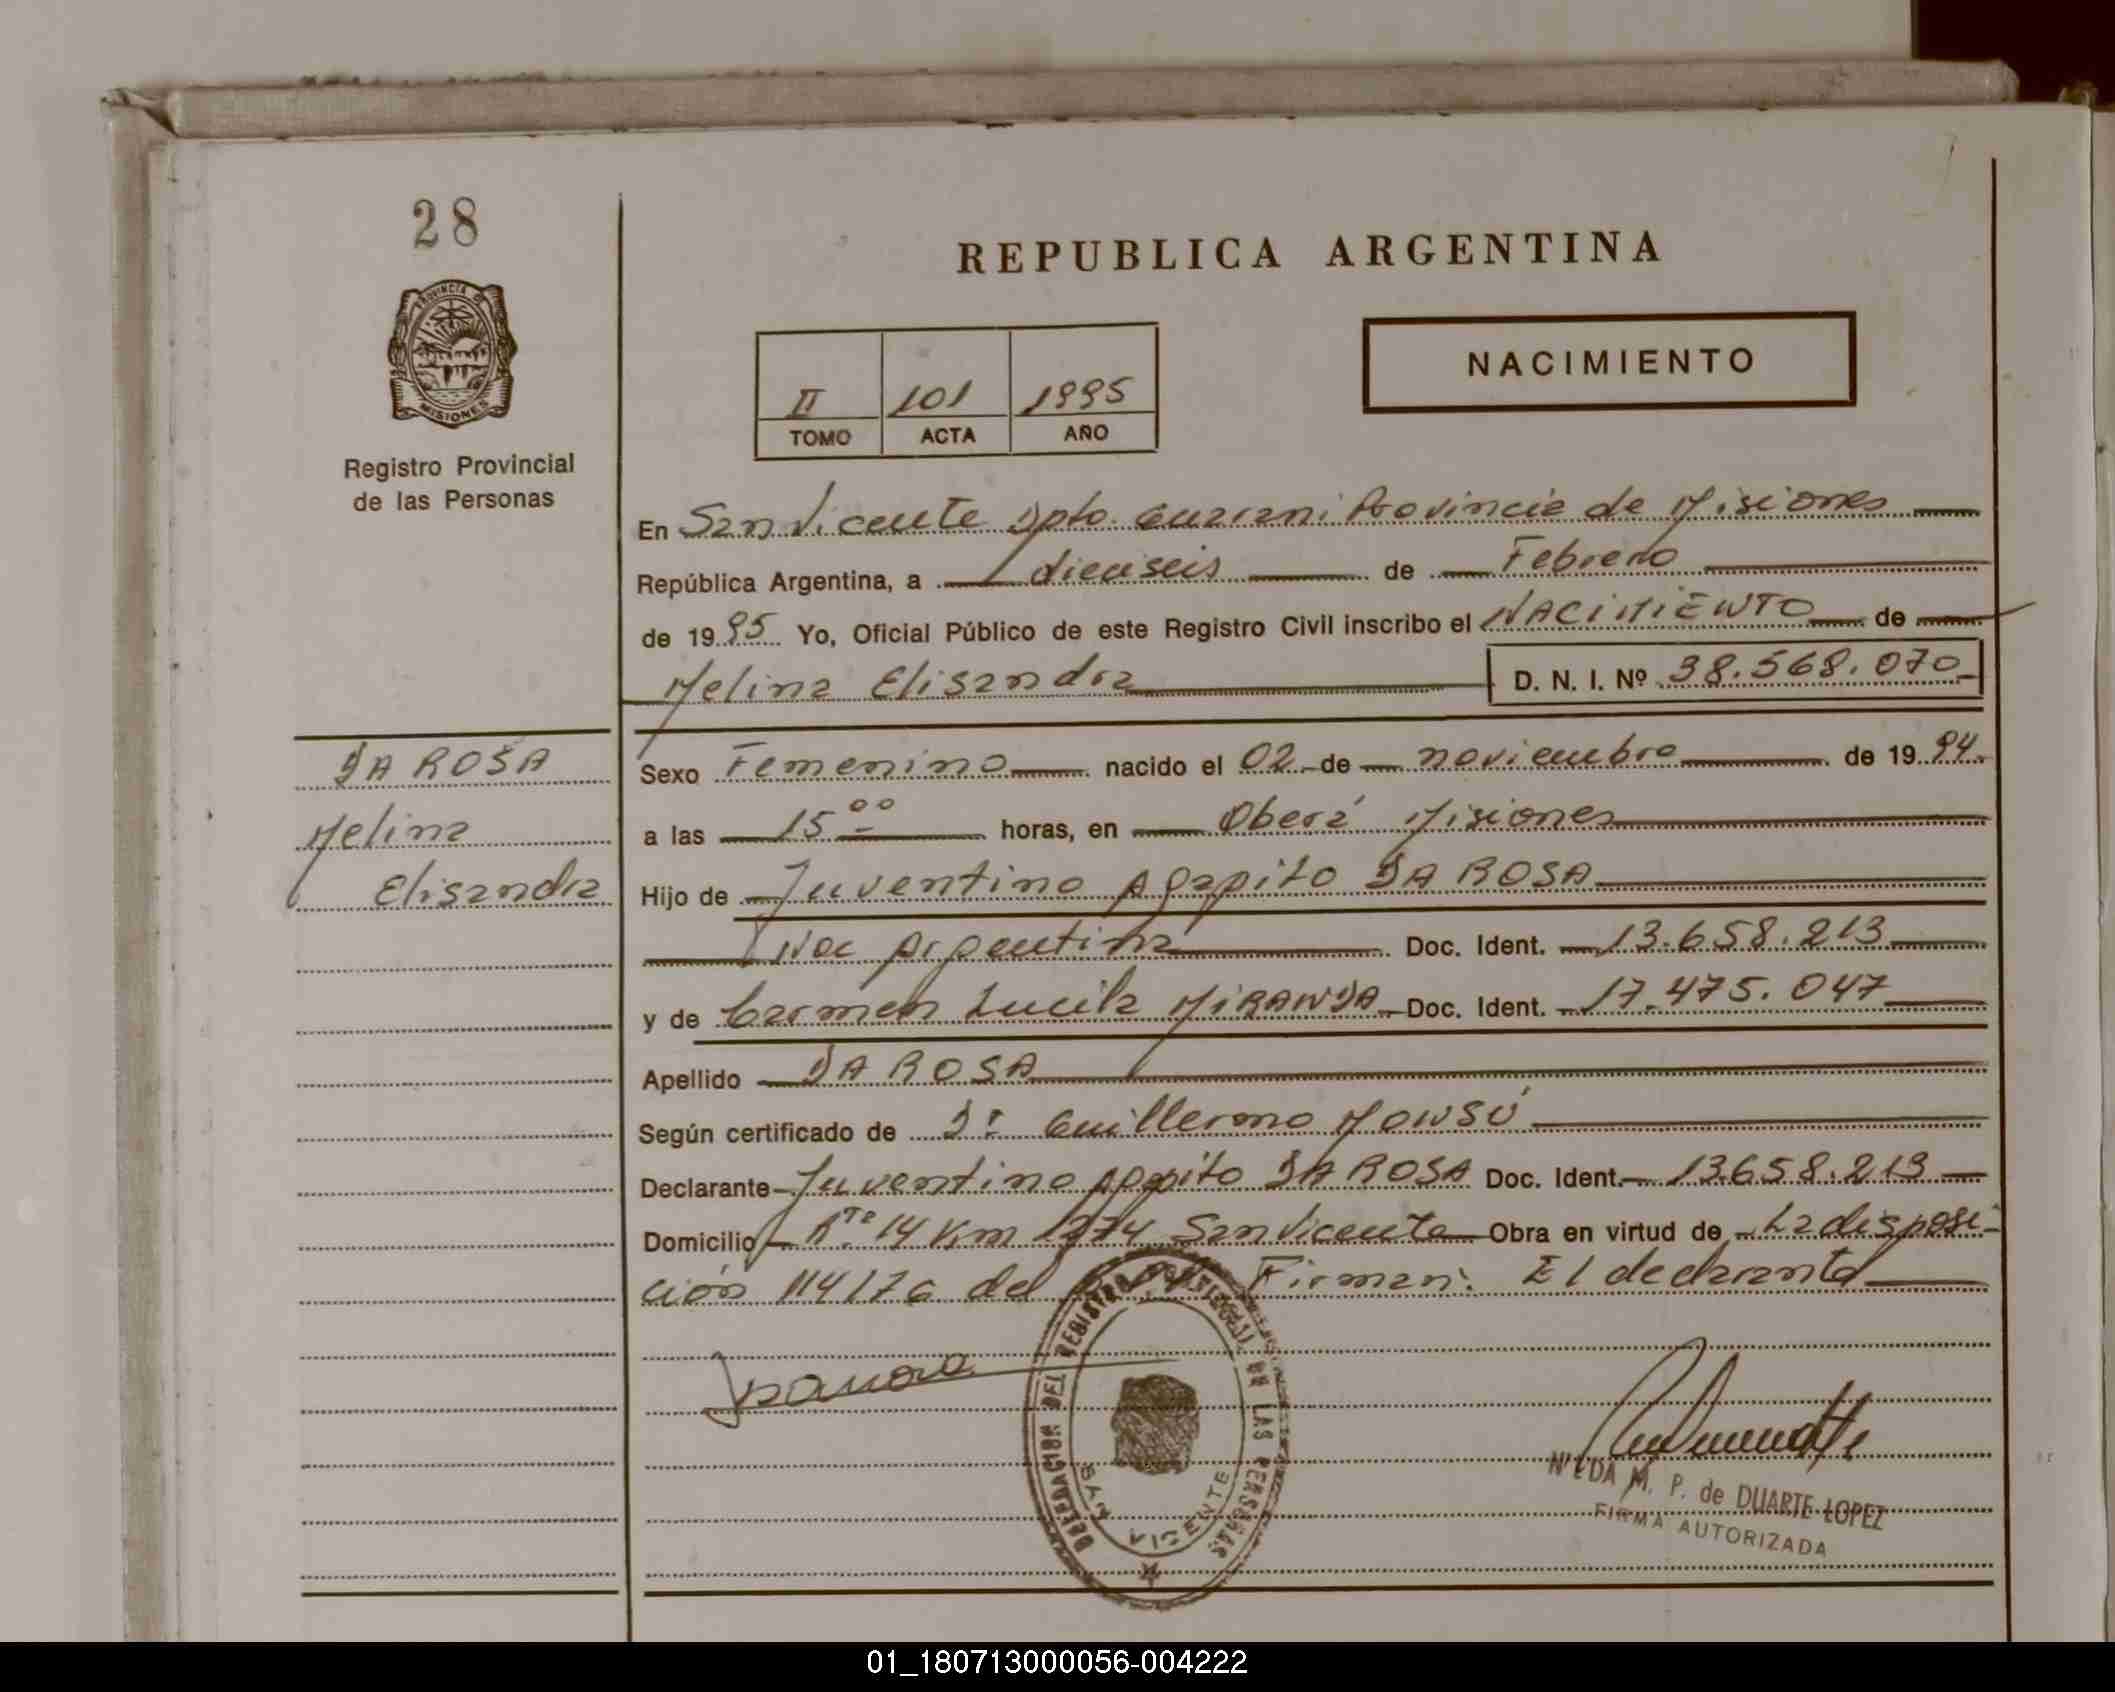 28
PROVINCIA DE
MISIONES
Registro Provincial
de las Personas
REPUBLICA ARGENTINA
NACIMIENTO
II 101 1995
TOMO ACTA AÑO
En San Vicente Dpto. Guarani Provincia de Misiones
República Argentina, a dieciseis de Febrero
de 1995 Yo, Oficial Público de este Registro Civil inscribo el NACIMIENTO de
Melina Elisandra D. N. I. Nº 38.568.070
DA ROSA
Melina
Elisandra
Sexo Femenino nacido el 02 de noviembre de 1994.
a las 15 00 horas, en Oberá Misiones
Hijo de Juventino Agapito DA ROSA
Nac Argentina Doc. Ident. 13.658.213
y de Carmen Lucila MIRANDA Doc. Ident. 17.475.047
Apellido DA ROSA
Según certificado de Dr Guillermo MONSÚ
Declarante Juventino Agapito DA ROSA Doc. Ident. 13.658.213
Domicilio Rta 14 Km 1274 San Vicente Obra en virtud de La disposi-
ción 114/76 del Firman: El declarante
DELEGACION DEL REGISTRO PROVINCIAL DE LAS PERSONAS
SAN VICENTE
M. P. de DUARTE LOPEZ
FIRMA AUTORIZADA
01_180713000056-004222